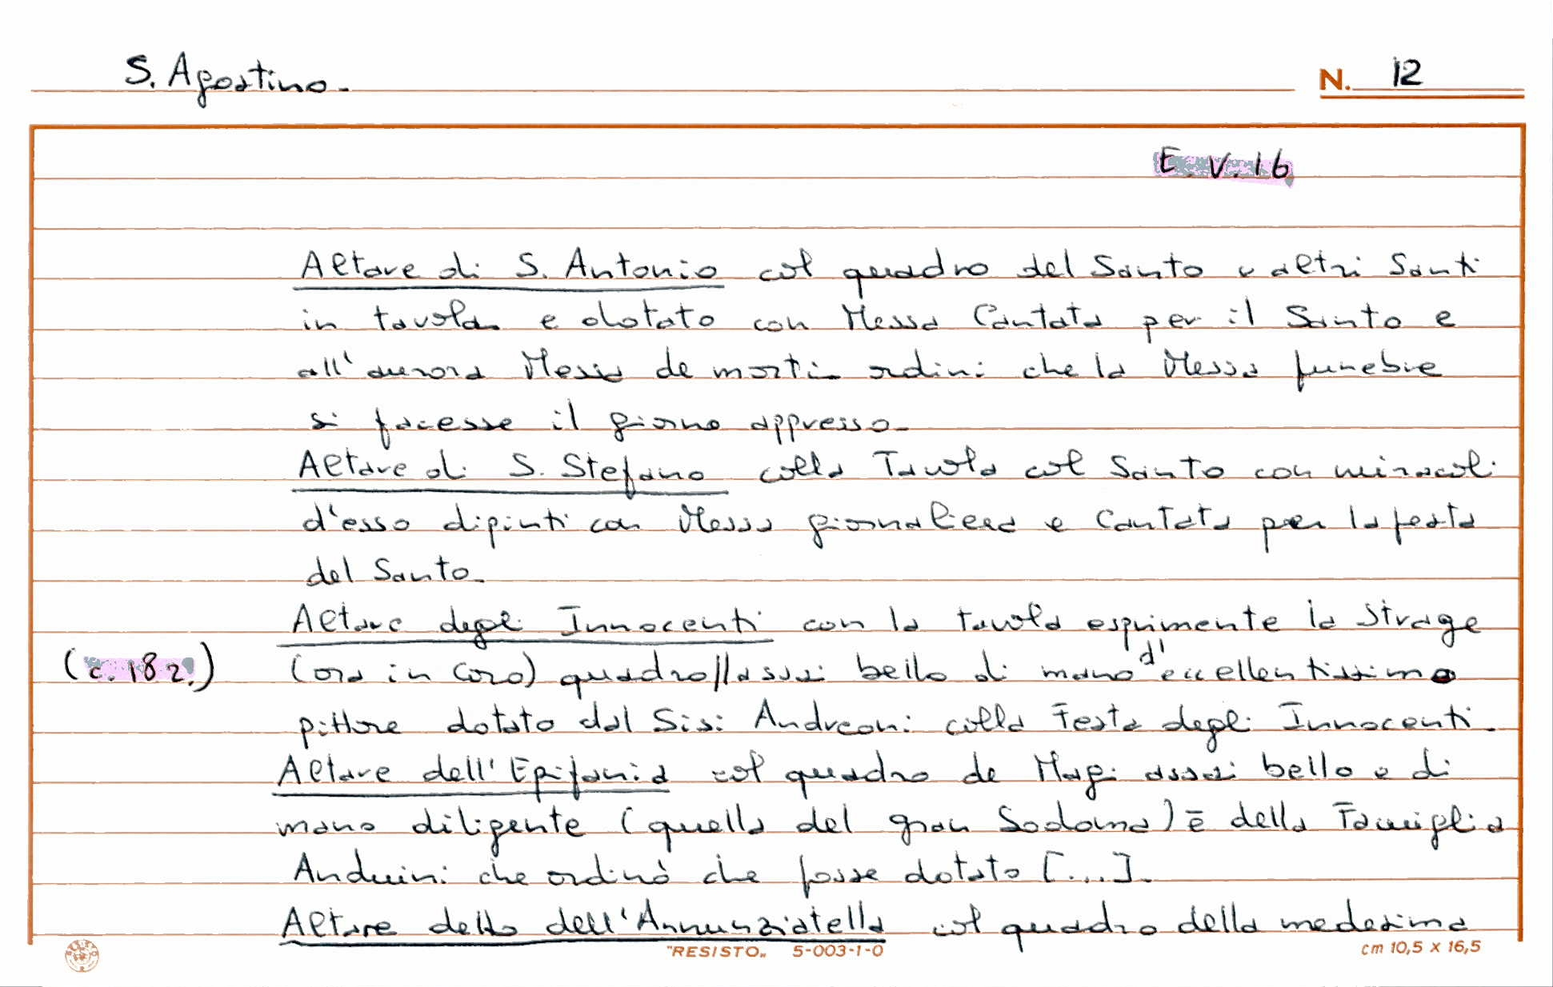 S. Agostino.
N. 12
E. V. 16
Altare di S. Antonio col quadro del Santo e altri Santi
in tavola e dotato con Messa Cantata per il Santo e
all'aurora Messa de morti ordini che la Messa funebre
si facesse il giorno appresso.
Altare di S. Stefano colla Tavola col Santo con miracoli
d'esso dipinti con Messa giornaliera e Cantata per la festa
del Santo.
Altare degli Innocenti con la tavola esprimente la Strage
(c. 182.) (ora in Coro) quadro//assai bello di mano d'eccellentissimo
pittore dotato dal Sisi Andreoni colla Festa degli Innocenti.
Altare dell'Epifania col quadro de Magi assai bello e di
mano diligente (quella del gran Sodoma) è della Famiglia
Anduini che ordinò che fosse dotato [...].
Altare detto dell'Annunziatella col quadro della medesima
"RESISTO" 5-003-1-0
cm 10,5 x 16,5